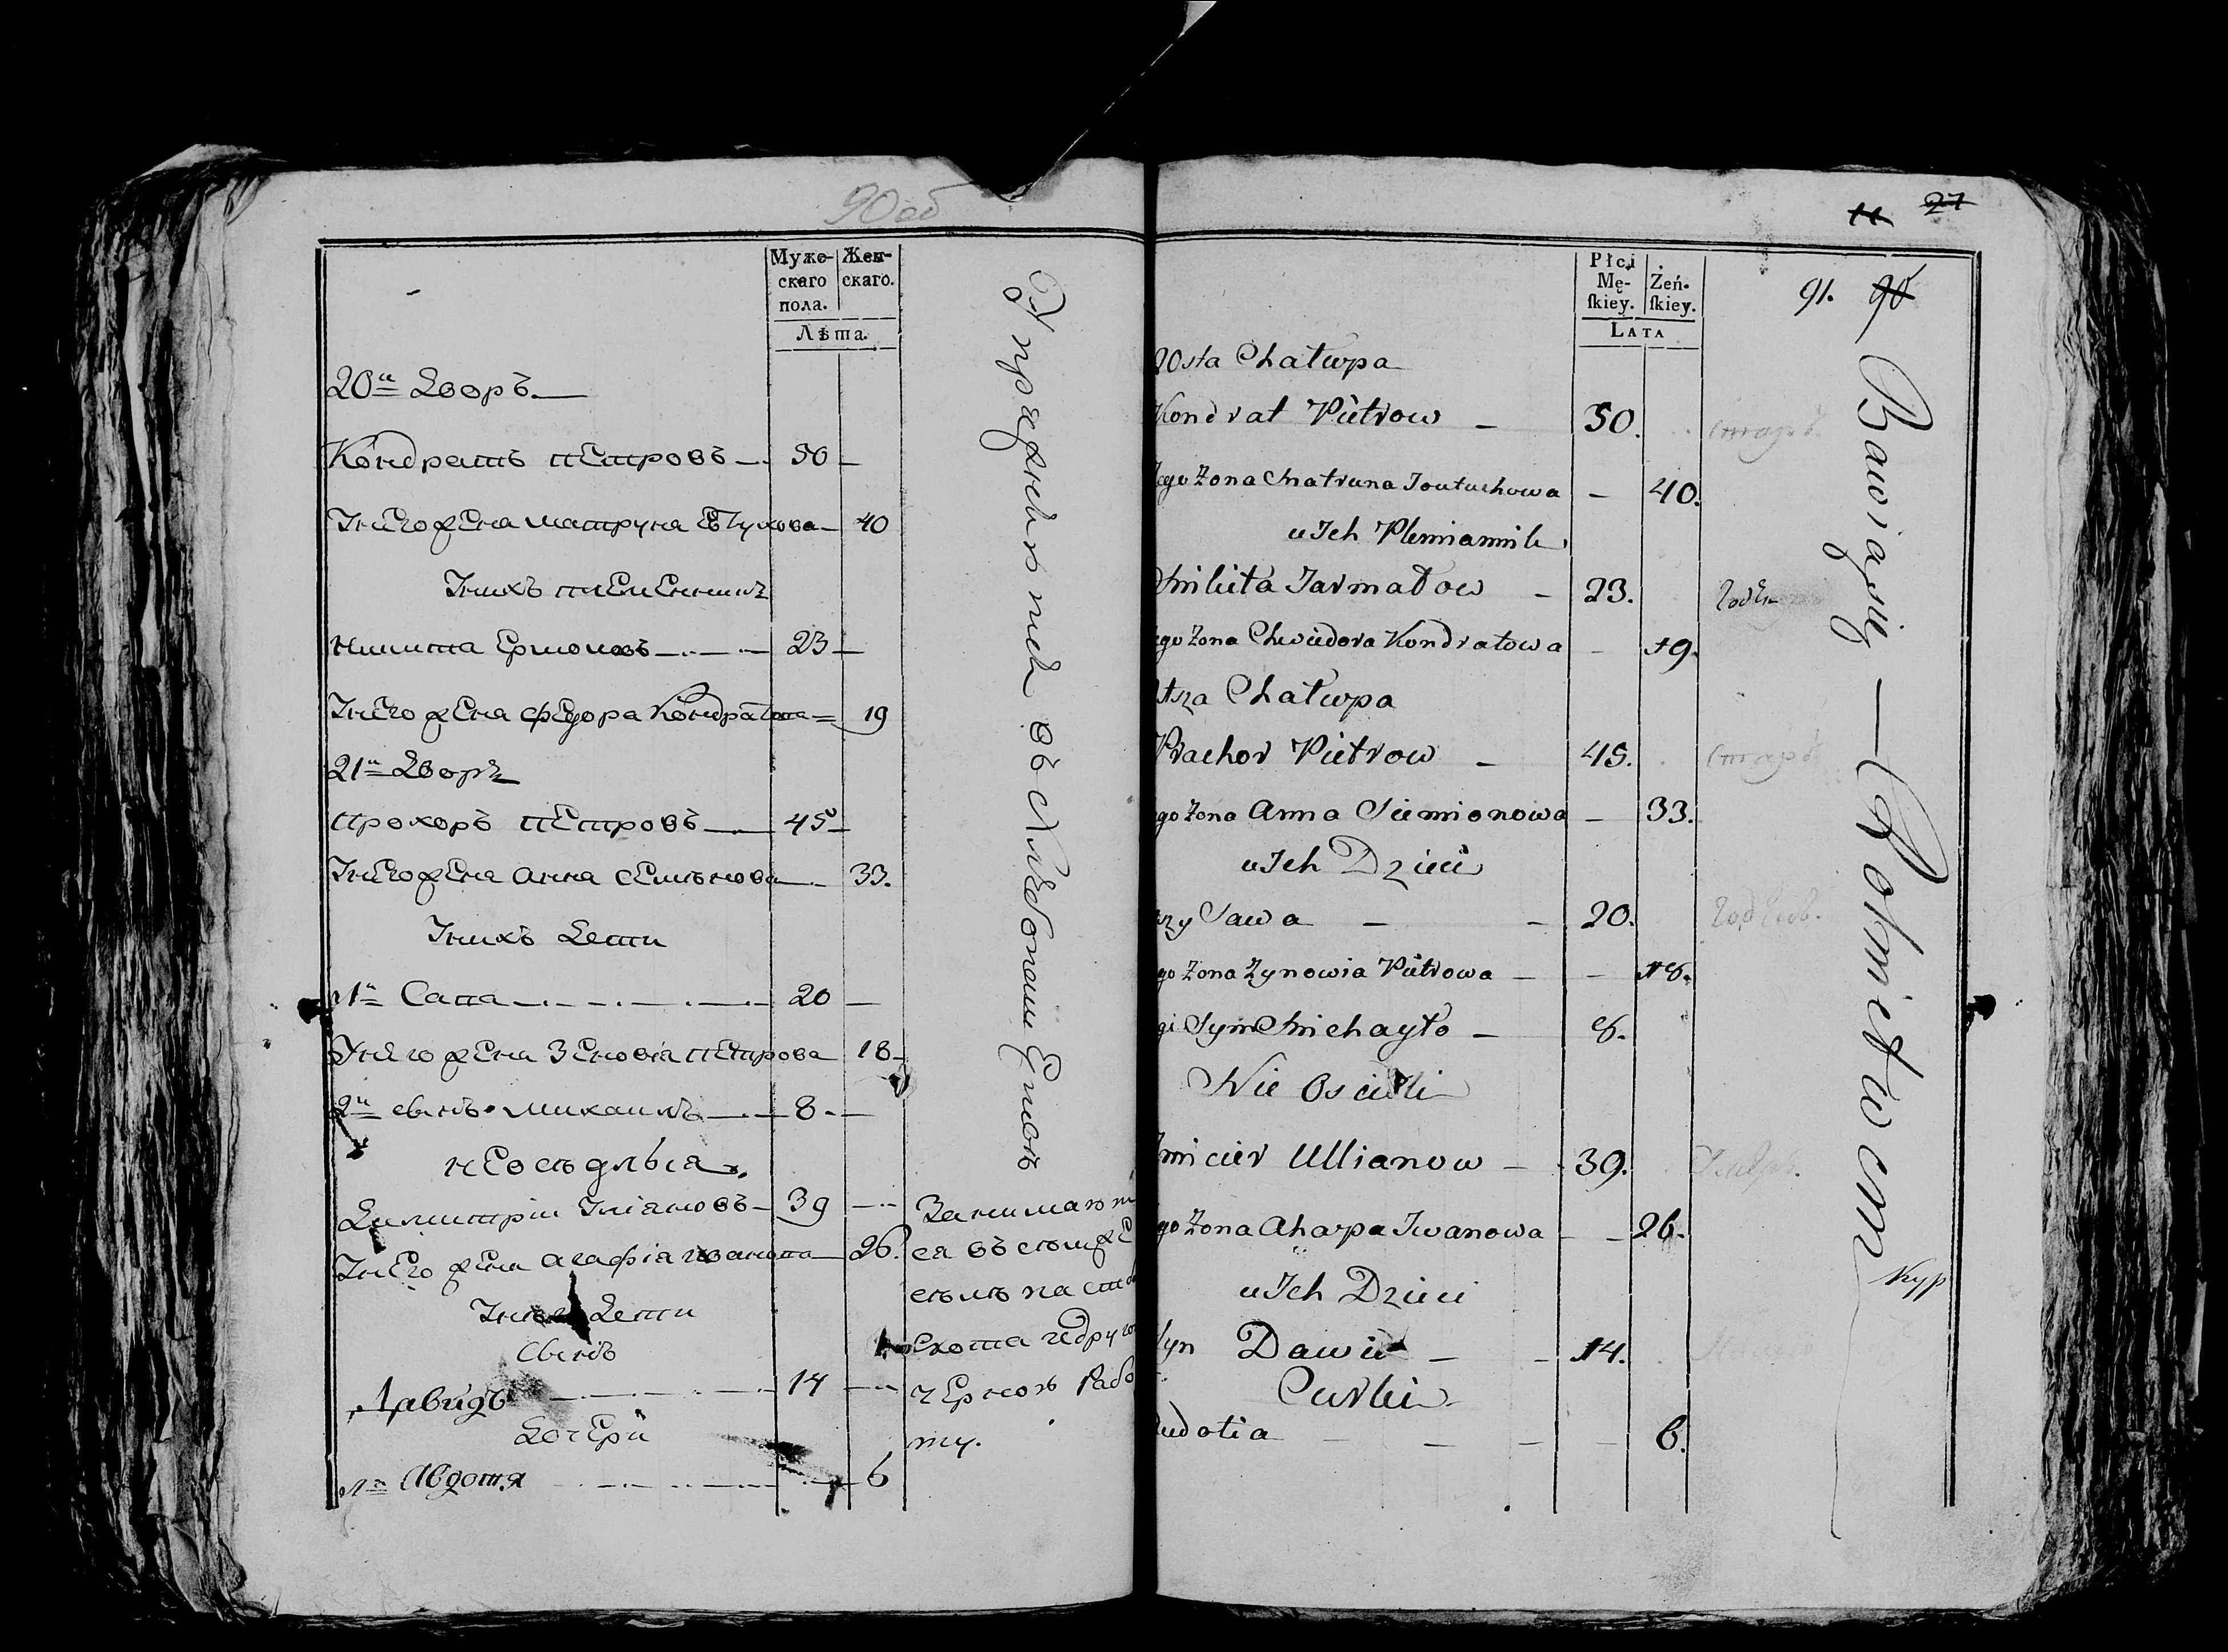 90 об
Муже-
скаго
пола.
Жен-
скаго.
Лѣта.
20й Дворъ.
Кондратъ петровъ 50
Iнего жена матруна евтухова 40
Iнихъ племенникъ
никита Ермоловъ 23
Iнего жена федора Кондратова 19
21й Дворъ
прохоръ петровъ 45
Iнего жена анна семионова 33.
Iнихъ Дети
1й Савва 20
Iнего жена Зеновiа петрова 18
2й сынъ михаилъ 8
неоседлыя
Димитрiи Iлiяновъ 39
Iнего жена агафiа ивановна 26.
Дети
Сынъ
Давидъ 14
Дочери
1я Авдотя 6
Упражняются въ Хлебопашестве
Занимаютъ
ся въ
скота идруго
черною Рабо
ту.
11 27
91. 90
Płci
Mę-
ſkiey.
Żeń-
ſkiey.
LATA
20sta Chałupa
Kondrat Pietrow 50.
Jego Żona Matruna Joutuchowa 40.
u Ich Plemiannik
Mikita Jarmałow 23.
ego Żona Chwiedora Kondratowa 19.
Chałupa
Prachor Pietrow 45.
go Żona Anna Siemionowa 33.
u Ich Dzieci
Sawa 20.
go Żona Zynowia Pietrowa 18.
gi Syn Michayło 8.
Nie Osiedli
micier Ullianow 39.
go Żona Aharpa Iwanowa 26.
u Ich Dzieci
Syn Dawid 14.
Curki
udotia 6.
старъ.
старъ
Bawiąsię — Rolnictwem